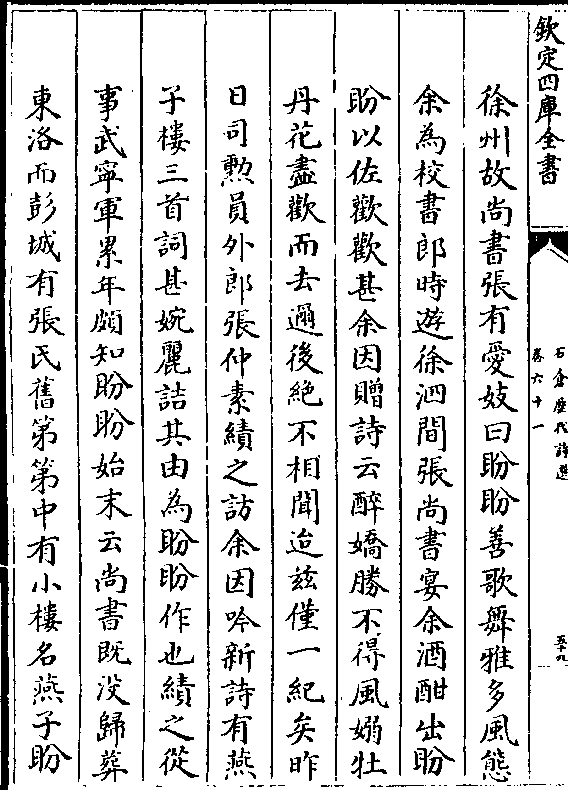 欽定四庫全書
石倉歷代詩選
卷六十一
五十九
徐州故尚書張有愛妓曰盼盼善歌舞雅多風態
余為校書郎時遊徐泗間張尚書宴余酒酣出盼
盼以佐歡歡甚余因贈詩云醉嬌勝不得風嫋牡
丹花盡歡而去邇後絶不相聞迨兹僅一紀矣昨
日司勲員外郎張仲素繢之訪余因吟新詩有燕
子樓三首詞甚婉麗詰其由為盼盼作也繢之從
事武寧軍累年頗知盼盼始末云尚書既沒歸葬
東洛而彭城有張氏舊第第中有小樓名燕子盼